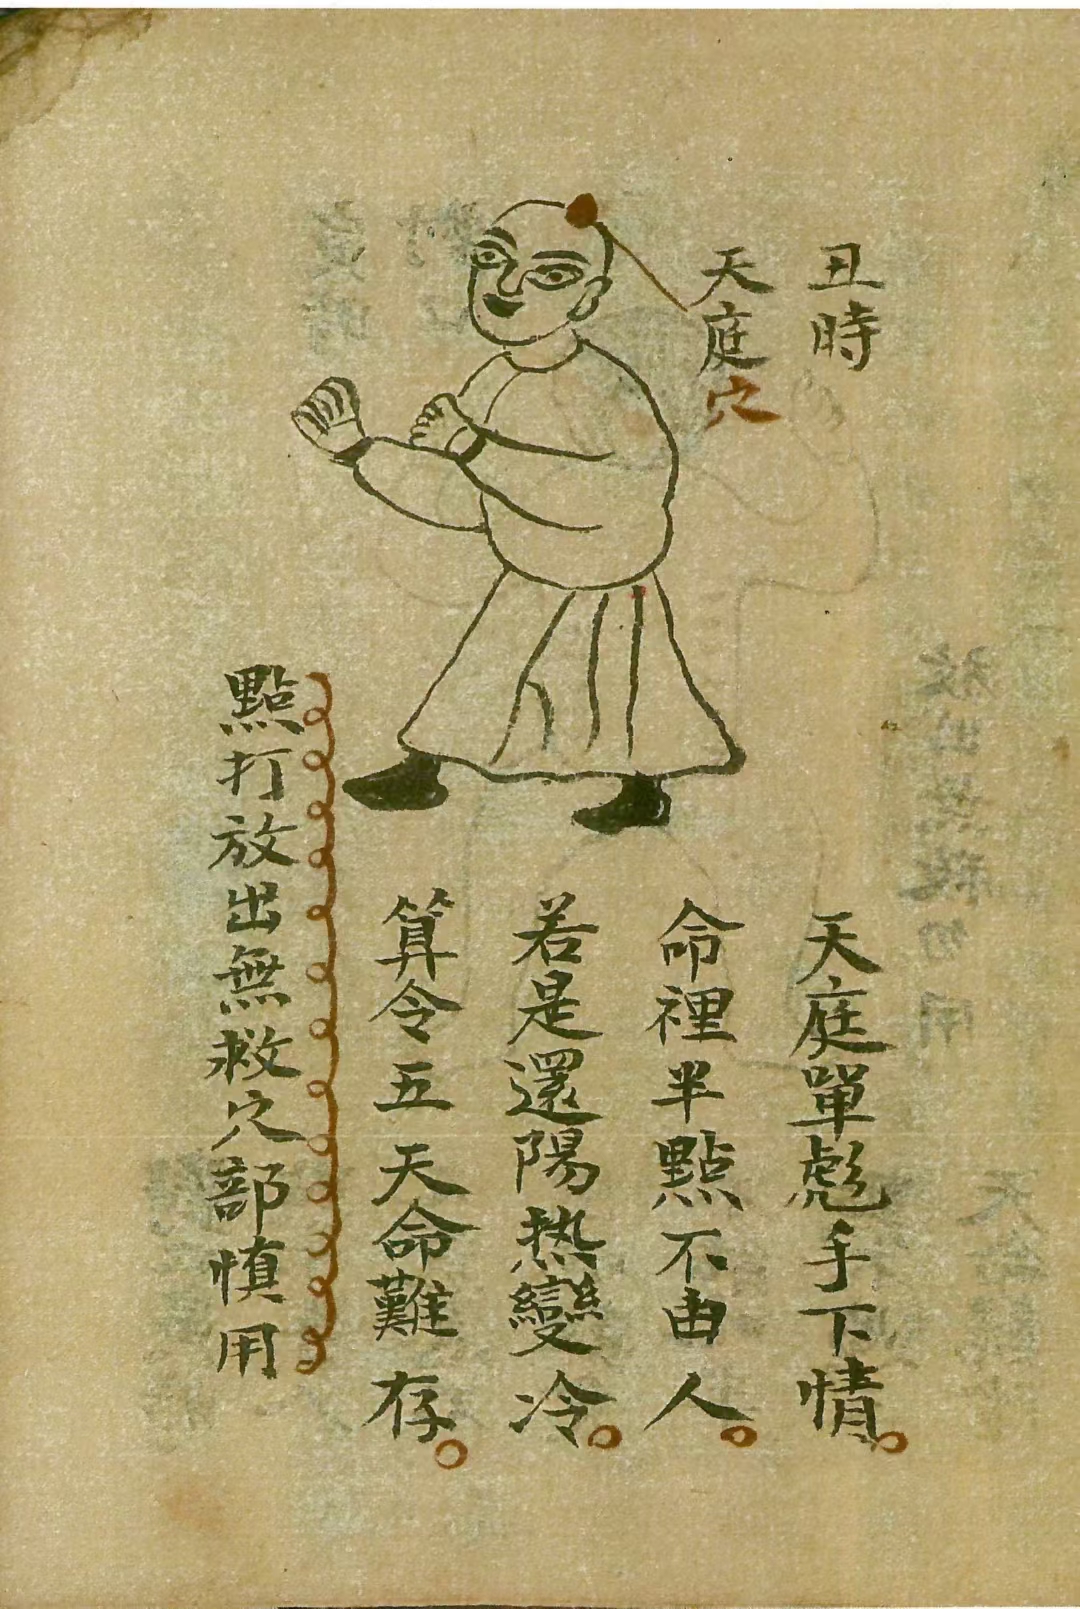 丑時
天庭穴
天庭單彪手下情
命裡半點不由人
若是還陽热變冷
算令五天命難存
點打放出無救穴部慎用